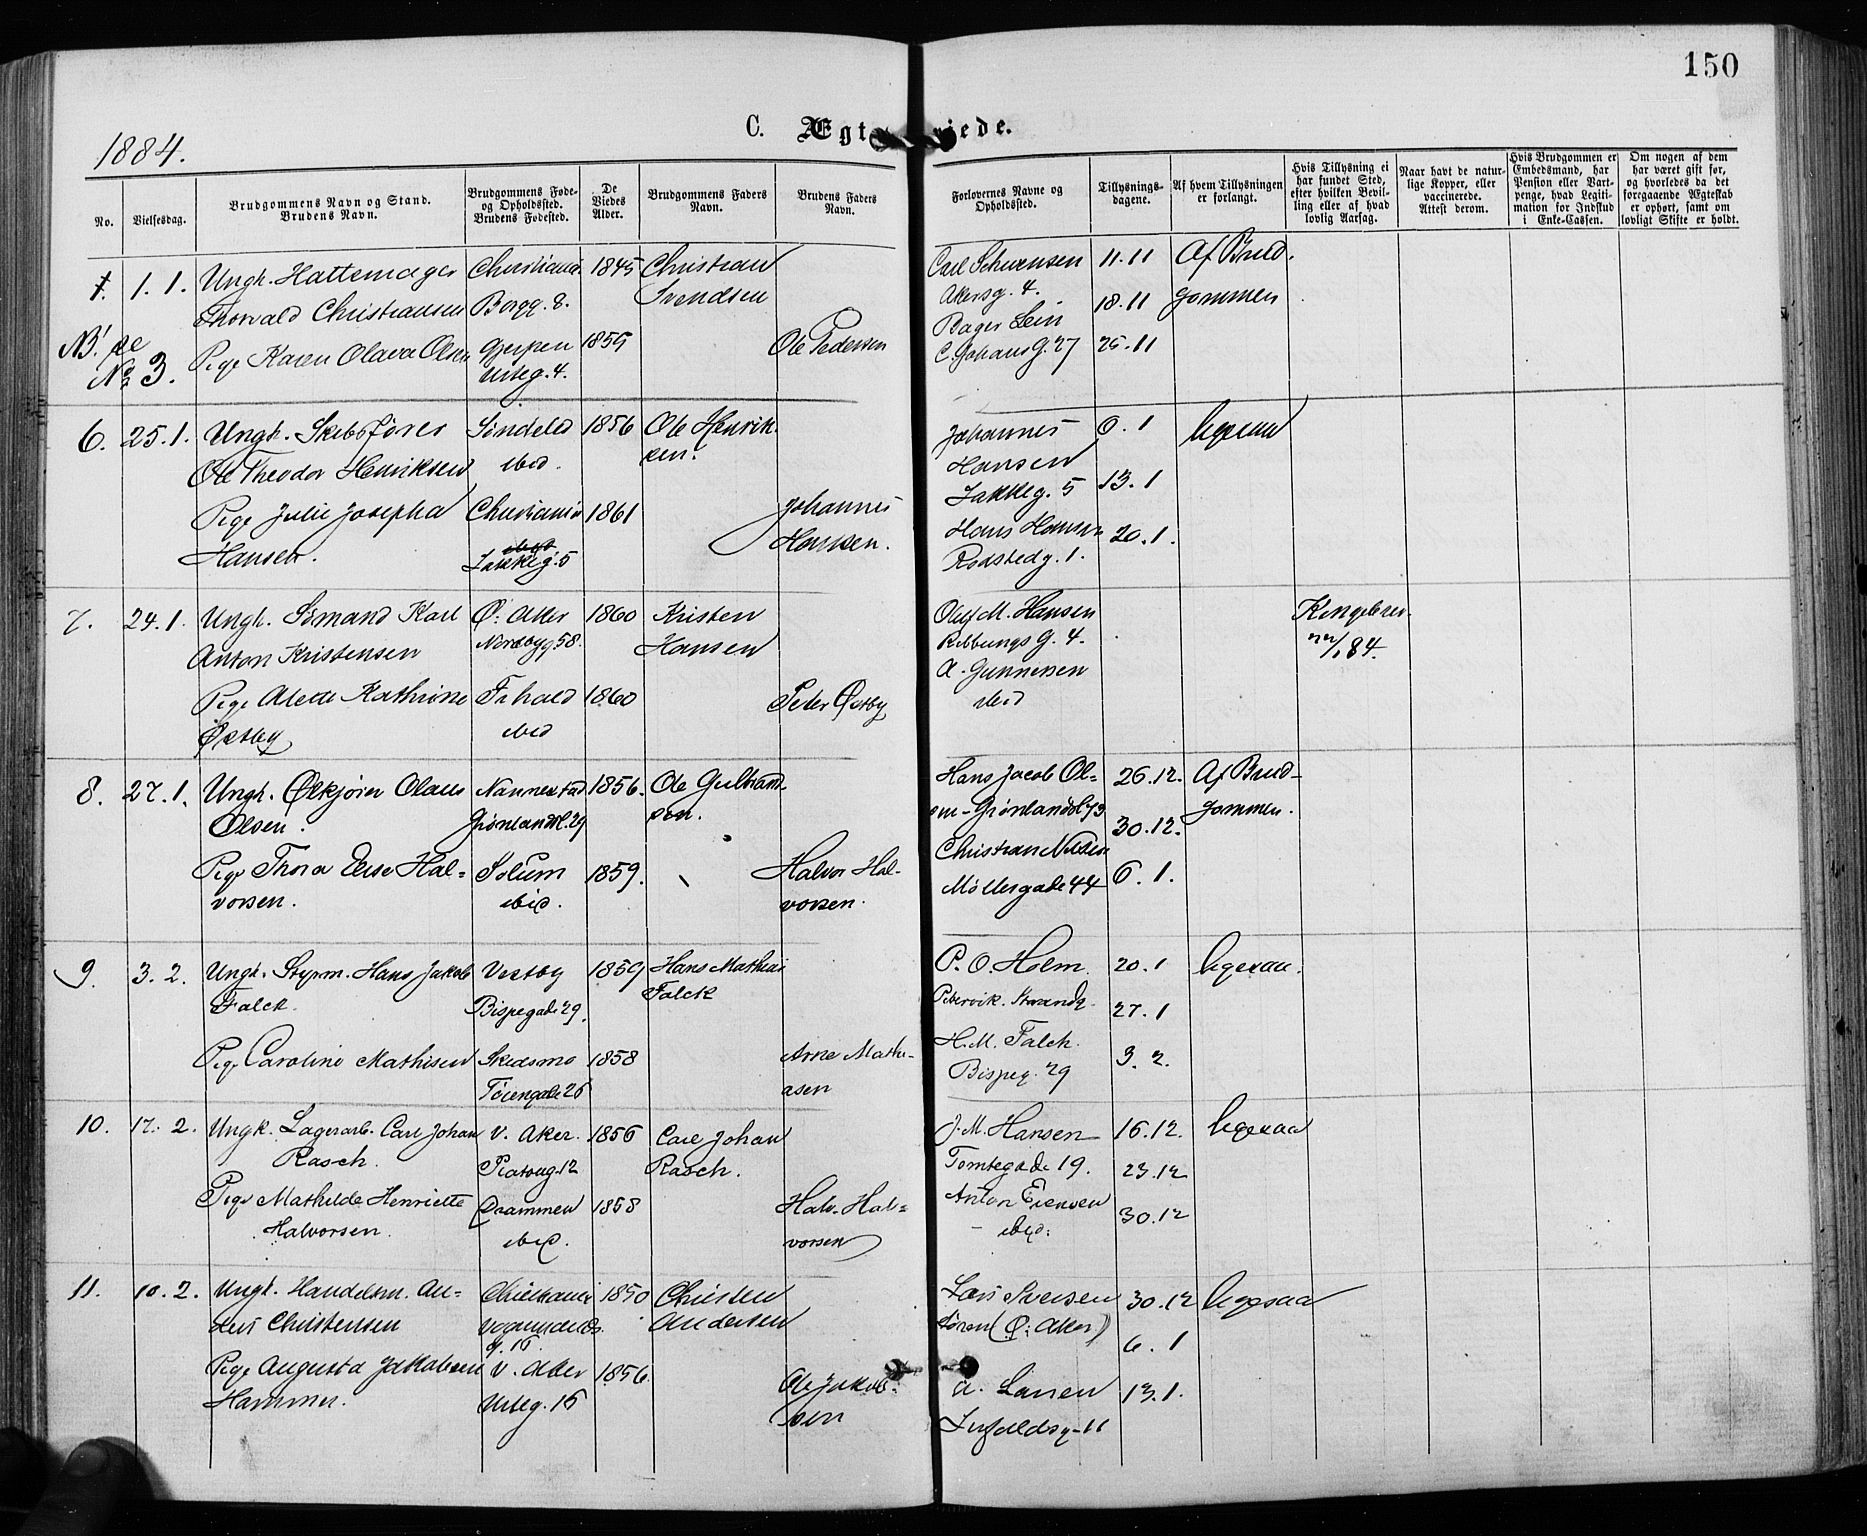 150
1884.
C. Ægteviede.
No.
Vielsesdag.
Brudgommens Navn og Stand.
Brudens Navn.
Brudgommens Føde-
og Opholdssted.
Brudens Fødested.
De
Viedes
Alder.
Brudgommens Faders
Navn.
Brudens Faders
Navn.
Forlovernes Navne og
Opholdssted.
Tillysnings-
dagene.
Af hvem Tillysningen
er forlangt.
Hvis Tillysning ei
har fundet Sted,
efter hvilken Bevil-
ling eller af hvad
lovlig Aarsag.
Naar havt de natur-
lige Kopper, eller
vaccinerede.
Attest derom.
Hvis Brudgommen er
Embedsmand, har
Pension eller Vart-
penge, hvad Legiti-
mation for Indskud
i Enke-Cassen.
Om nogen af dem
har været gift før,
og hvorledes da det
foregaaende Ægteskab
er ophørt, samt om
lovligt Skifte er holdt.
1. 1. 1. Ungk. Hattemager Christiania 1845 Christian Carl Schwensen 11.11 Af Brud-
Thorvald Christiansen Borgg. 8. Svendsen Akersg. 4. 18.11 gommen
NB! se Pige Karen Olava Olsen Gjerpen 1855 Ole Pedersen Bager Lein
No 3. Urteg. 4. C. Johans G. 27 25.11
6. 25.1. Ungk. Skibsfører Søndeled 1856 Ole Henrik- Johannes 6.1 ligesaa
Ole Theodor Henriksen ibid. sen. Hansen 13.1
Pige Julie Josepha Christiania 1861 Johannes Lakkeg. 5
Hansen. Lakkeg. 5 Hansen. Hans Hansen 20.1.
Rodstedg. 1.
7. 24.1. Ungk. Sømand Karl Ø. Aker 1860 Kristen Oluf M. Hansen Kongebrev
Anton Kristensen Nordbyg 58. Hansen Ribbungs G. 4. 22/1 84.
Pige Kathrine Fr hald 1860 Peter Østby A. Gunnersen
Østby ibid ibid
8. 27.1. Ungk. Ølkjører Olaus Nannestad 1856. Ole Gulbrand- Hans Jacob Ol- 26.12. Af Brud-
Olsen. Grønlandsl. 29 sen. sen - Grønlandsl 73 30.12. gommen.
Pige Thora Elise Hal- Solum 1859. Halvor Hal- Christian Nilsen
vorsen. ibid. vorsen. Møllergade 44 6.1.
9. 3.2. Ungk. Styrm. Hans Jakob Vestby 1859 Hans Mathias P. O. Holm 20.1 ligesaa.
Falck. Bispegade 29. Falck Pibervik. Strandg. 27.1
Pige Caroline Mathisen Skedsmo 1858 Arne Mathi- H. M. Falck. 3.2.
Tøiengade 26 asen Bispeg. 29
10. 17. 2. Ungk. Lagerarb. Carl Johan V. Aker. 1856 Carl Johan J. M. Hansen 16.12. ligesaa
Rasch. Platoug. 12 Rasch. Tomtegade 19. 23.12
Pige Mathilde Henriette Drammen 1858 Halv. Hal- Anton 30.12
Halvorsen. ibid. vorsen ibid.
11. 10.2. Ungk. Handelsm. An- Christiania 1850 Christen Lars Svensen 30.12 ligesaa
ders Christensen g. 16. Andersen (Ø. Aker) 6.1
Pige Augusta Jakobsen V. Aker 1856. Ole Jakob- A. Larsen 13.1.
Hammer. Urteg. 15 sen